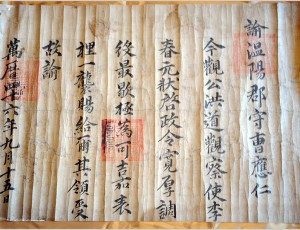 諭溫陽郡守曺應仁
今觀公洪道觀察使李
春元狀啓政令寬厚調
後最歇極爲可吉嘉表
裡一襲賜給爾其領受
故諭
萬曆四十六年九月十五日